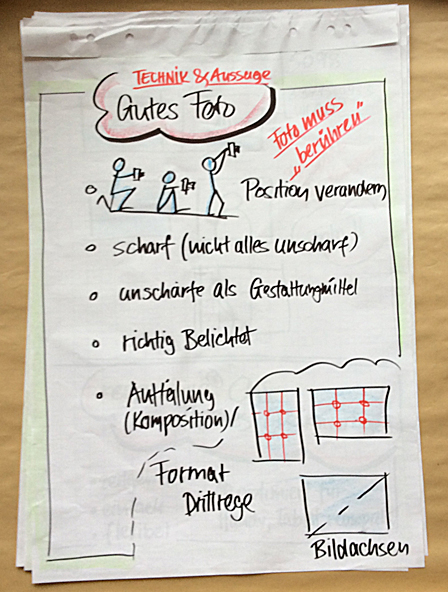 TECHNIK & Aussage
Gutes Foto
Foto muss
„berühren“
Position verandern
scharf (nicht alles unscharf)
unschärfe als Gestaltungmittel
richtig Belichtet
Aufteilung
(Komposition)/
Format
Drittrege
Bildachsen